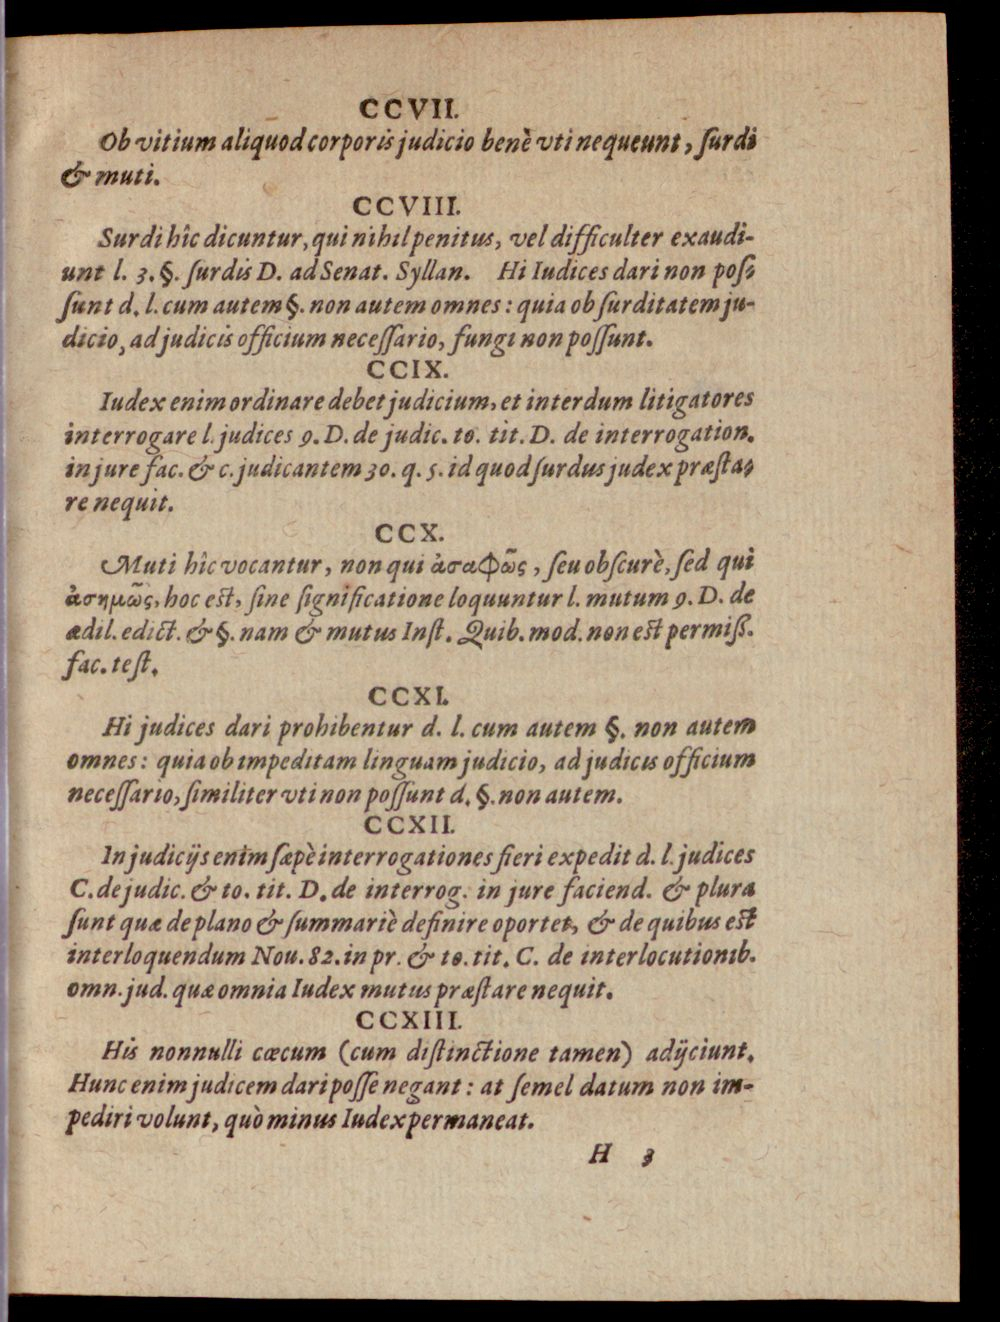 CCVII.
Ob vitium aliquod corporis judicio benè vti nequeunt, ſurdi
& muti.
CCVIII.
Surdi hîc dicuntur, qui nihil penitus, vel difficulter exaudi-
unt l. 3. §. ſurdis D. ad Senat. Syllan. Hi Iudices dari non poſ-
ſunt d. l. cum autem §. non autem omnes: quia ob ſurditatem ju-
dicio, ad judicis officium neceſſario, fungi non poſſunt.
CCIX.
Iudex enim ordinare debet judicium, et interdum litigatores
interrogare l. judices 9. D. de judic. to. tit. D. de interrogation.
in jure fac. & c. judicantem 30. q. 5. id quod ſurdus judex præſta-
re nequit.
CCX.
Muti hîc vocantur, non qui ἀσαφῶς, ſeu obſcurè, ſed qui
ἀσημῶς, hoc eſt, ſine ſignificatione loquuntur l. mutum 9. D. de
ædil. edict. & §. nam & mutus Inſt. Quib. mod. non eſt permiſſ.
fac. teſt.
CCXI.
Hi judices dari prohibentur d. l. cum autem §. non autem
omnes: quia ob impeditam linguam judicio, ad judicis officium
neceſſario, ſimiliter vti non poſſunt d. §. non autem.
CCXII.
In judicijs enim ſæpè interrogationes fieri expedit d. l. judices
C. de judic. & to. tit. D. de interrog. in jure faciend. & plura
ſunt quæ de plano & ſummariè definire oportet, & de quibus eſt
interloquendum Nou. 82. in pr. & to. tit. C. de interlocutionib.
omn. jud. quæ omnia Iudex mutus præſtare nequit.
CCXIII.
His nonnulli cæcum (cum diſtinctione tamen) adijciunt.
Hunc enim judicem dari poſſe negant: at ſemel datum non im-
pediri volunt, quò minus Iudex permaneat.
H 3